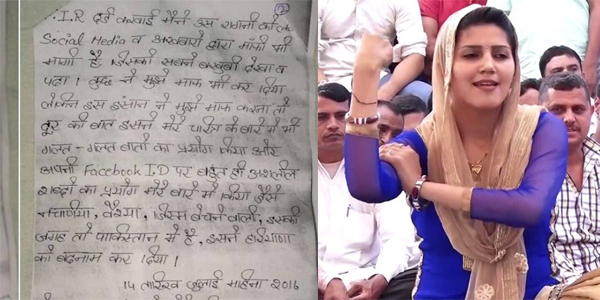 I.R दर्ज करवाई मैंने इस रागनी को ले
Social Media व अखबारों द्वारा माफी भी
मांगी है। जिसको सबने बखुबी देखा व
पढा। कुछ ने मुझे माफ भी कर दिया
लेकिन इस इंसान ने मुझे माफ करना तो
दूर की बात इसने मेरे चरित्र के बारे में भी
गलत-गलत बातों का प्रयोग किया और
अपनी Facebook I.D पर बहुत ही अश्लील
शब्दों का प्रयोग मेरे बारे में किया जैसे
नचाणीया, वैश्या, जिस्म बेचने वाली, इसकी
जगह तो पाकिस्तान में है, इसने हरियाणा
को बदनाम कर दिया।
14 तारिख जुलाई महिना 2016